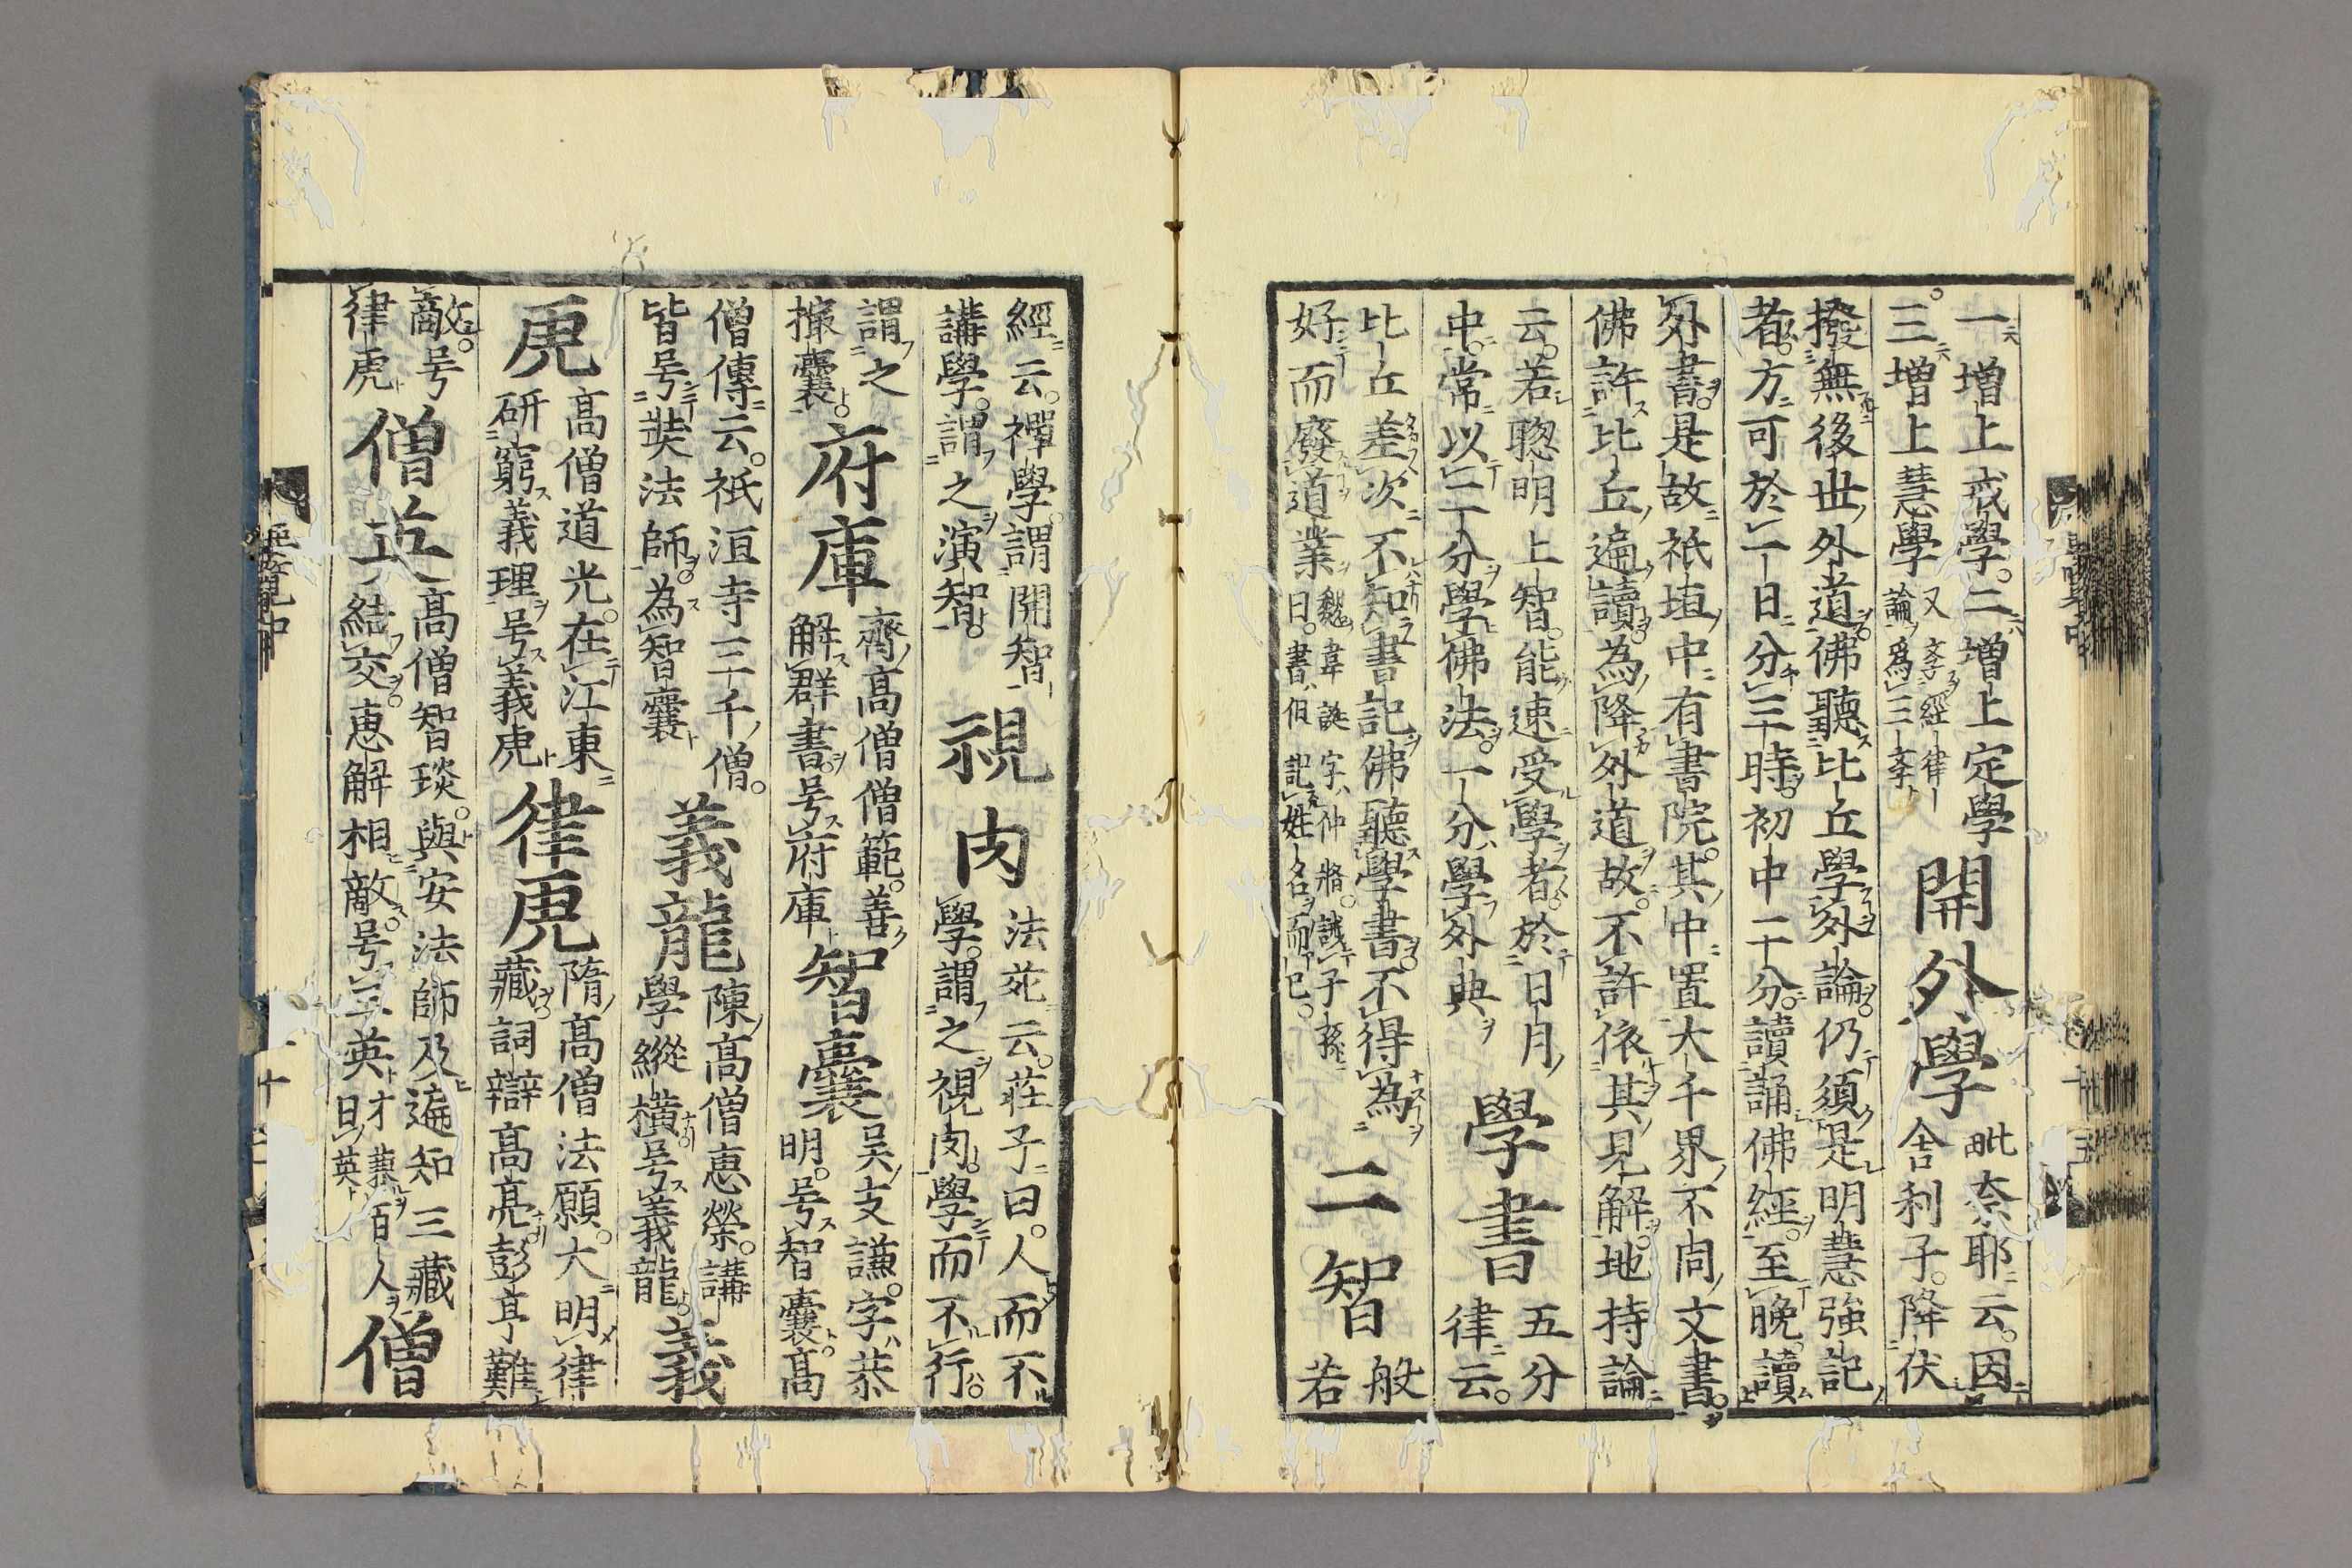 一増上戒學。二増上定學
三増上慧學
又孝經律
論為三孝
開外學
毗奈耶云。因
舍利子。降伏
撥無後世外道。佛聽比丘學外論。仍須是明慧強記
者。方可於一日分三時。初中二分。讀誦佛經。至晚。讀
外書。是故祇垣中有書院。其中置大千界不同文書。
佛許比丘遍讀。為降外道故。不許依其見解。地持論
云。若聰明上智。能速受學者。於日月
中。常以二分學佛法。一分學外典
學書
五分
律云。
比丘差次不知書記佛聽學書。不得為
好而廢道業
魏韋誕字仲將。誡子孫
曰。書但記姓名而已。
二智
般
若
經云。禪學。謂開智
講學。謂之演智。
視肉
法苑云。莊子曰。人而不
學。謂之視肉。學而不行。
謂之
撮囊。
府庫
齊高僧僧範。善
解群書。号府庫
智囊
吳支謙。字恭
明。号智囊。高
僧傳云。祇洹寺三千僧。
皆号奘法師。為智囊
義龍
陳高僧惠榮。講
學縱橫。号義龍。
義
虎
高僧道光。在江東
研窮義理。号義虎
律虎
隋高僧法願。大明律
藏。詞辯高亮。彭亨難
敵。号
律虎
僧英
高僧智琰。與安法師及
結交。惠解相敵。号三英
遍知三藏
才兼百人
曰英
僧
要覽中